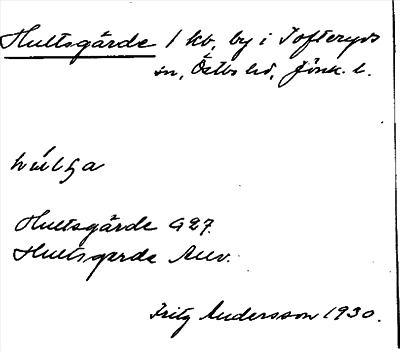 Hultsgärde 1 kb, by i Tofteryds
sn, Östbo hd, Jönk. l.
Hultsgärde G27.
Hultsgerde Auv.
Fritz Andersson 1930.